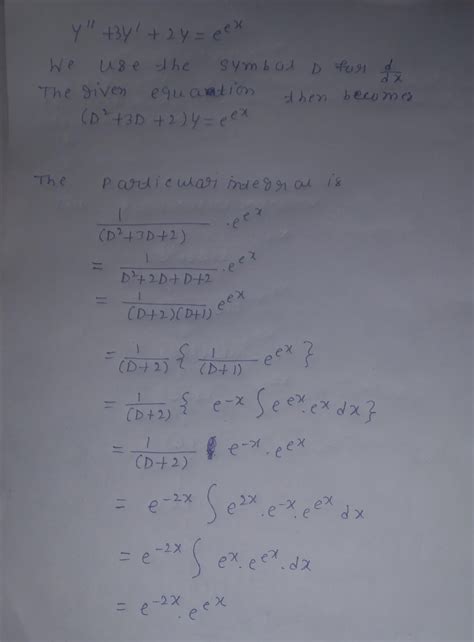 y'' + 3y' + 2y = e^{e^x}
We use the symbol D for \frac{d}{dx}
The given equation then becomes
(D^2+3D+2)y = e^{e^x}
The particular integral is
\frac{1}{(D^2+3D+2)} \cdot e^{e^x}
= \frac{1}{D^2+2D+D+2} \cdot e^{e^x}
= \frac{1}{(D+2)(D+1)} e^{e^x}
= \frac{1}{(D+2)} \{ \frac{1}{(D+1)} e^{e^x} \}
= \frac{1}{(D+2)} \{ e^{-x} \int e^{e^x} \cdot e^x dx \}
= \frac{1}{(D+2)} e^{-x} \cdot e^{e^x}
= e^{-2x} \int e^{2x} \cdot e^{-x} \cdot e^{e^x} dx
= e^{-2x} \int e^x \cdot e^{e^x} \cdot dx
= e^{-2x} \cdot e^{e^x}